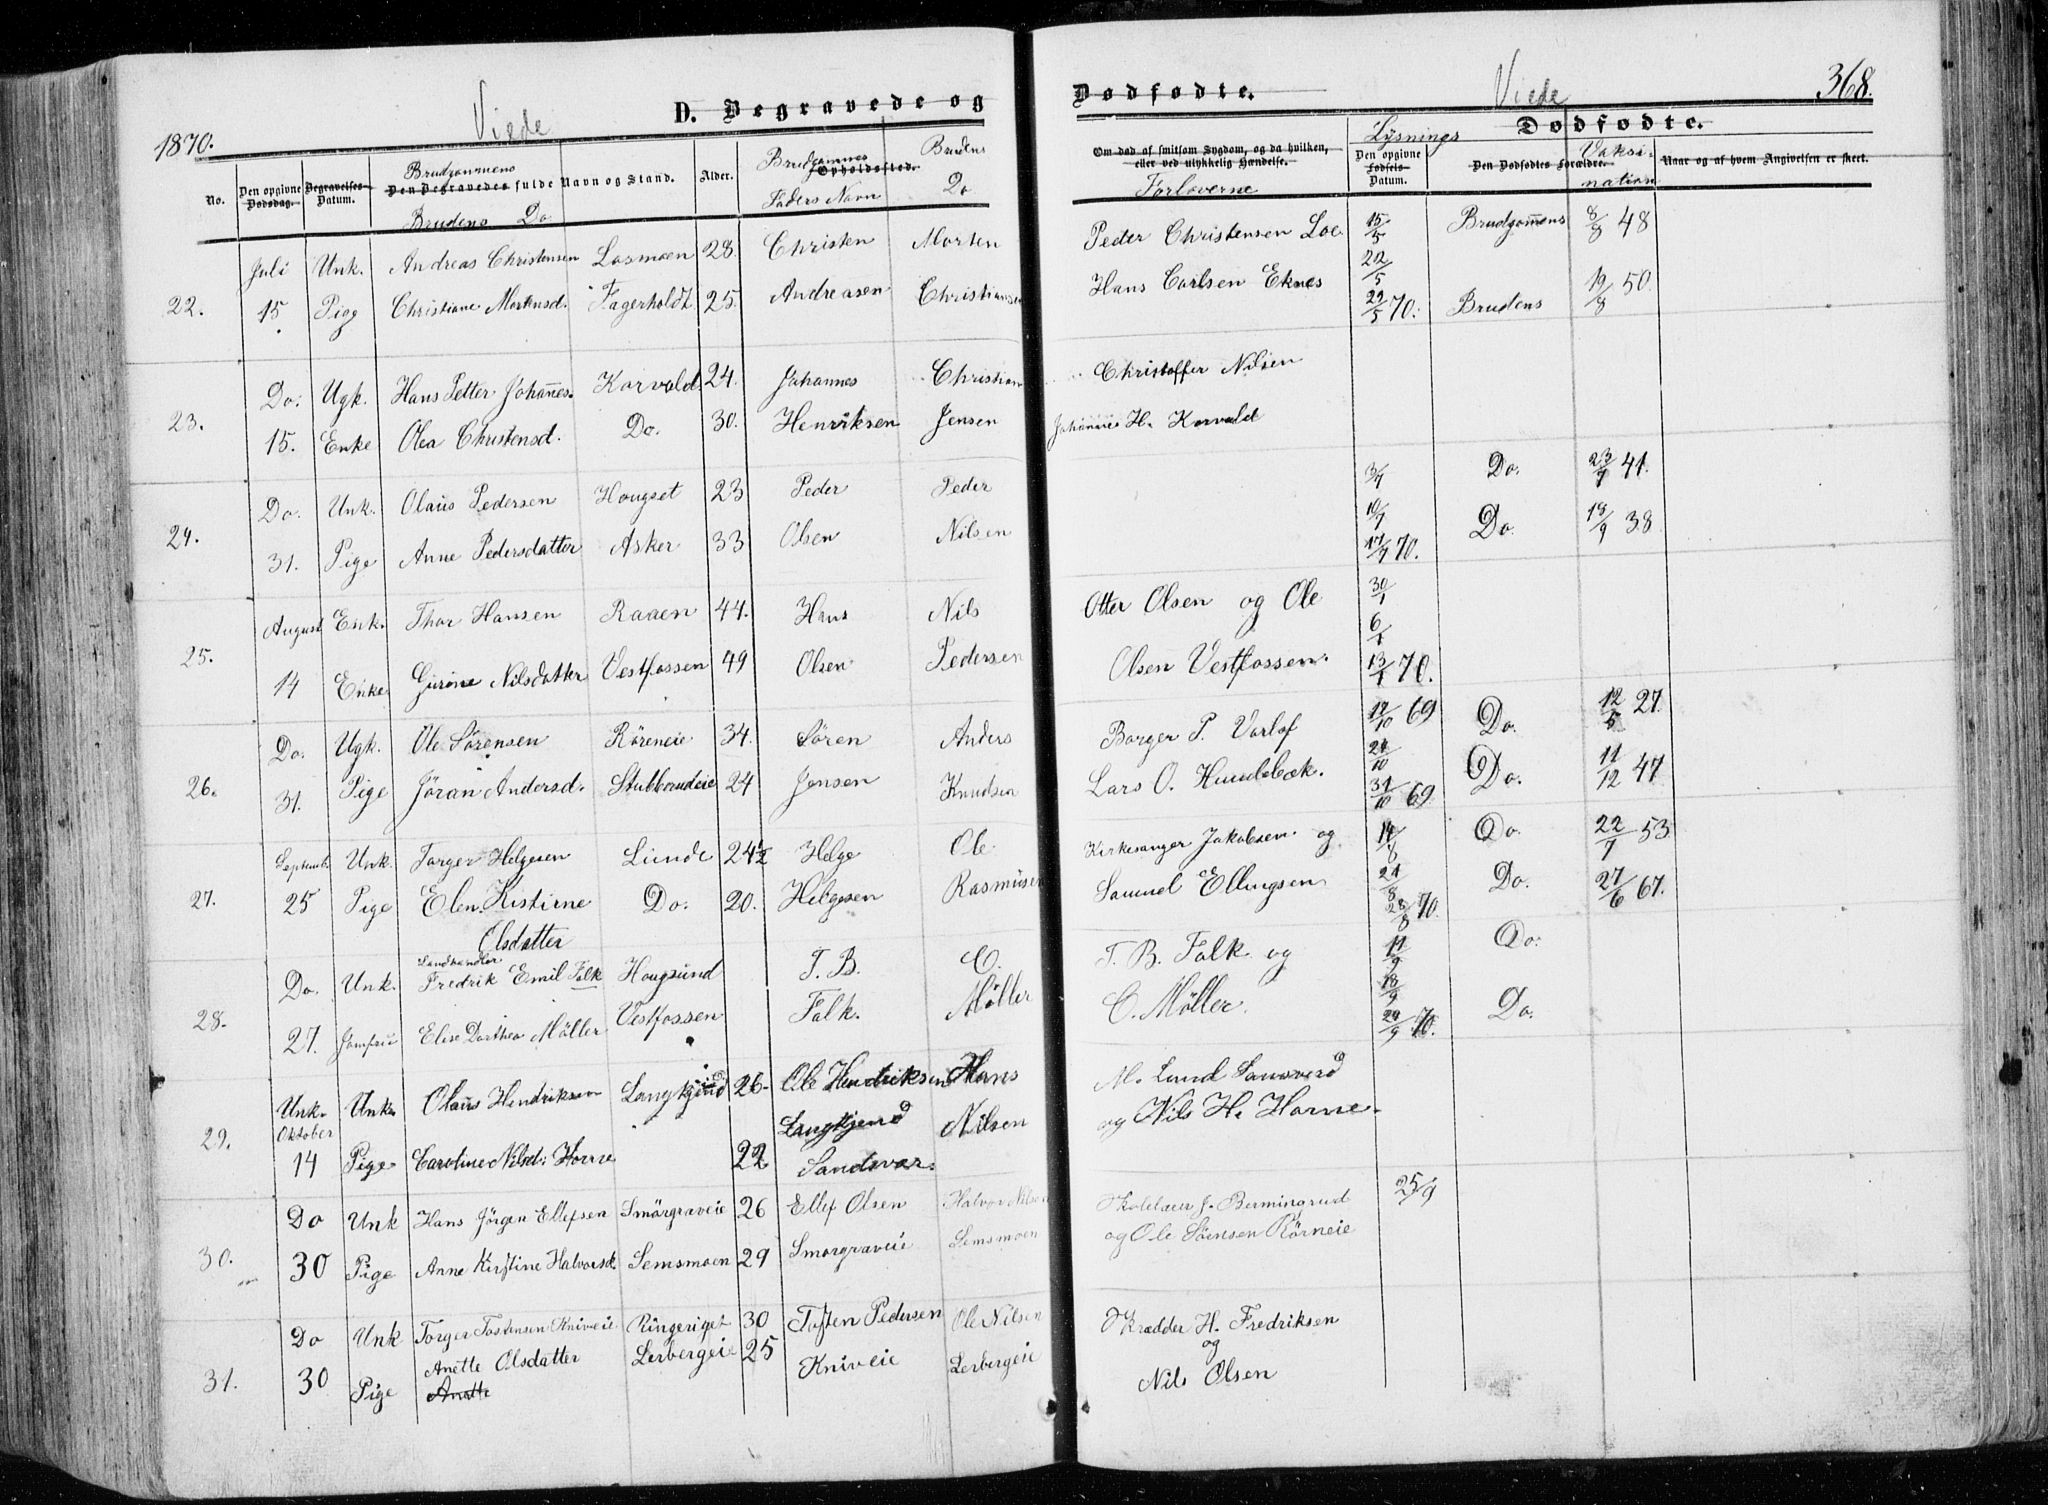 1870.
Viede
D. Begravede og
Dødfødte.
Viede
368.
Dødfødte.
No.
Den opgivne Dødsdag.
Begravelses-Datum.
Brudgommens
Den Begravedes fulde Navn og Stand.
Brudens Do
Alder.
Brudgommes
Opholdssted.
Faders Navn
Brudens
Do
Om død af smitsom Sygdom, og da hvilken,
eller ved ulykkelig Hændelse.
Forloverne
Lysnings
Den opgivne Fødsels-Datum.
Den Dødfødtes Forældre.
Vaksination
Naar og af hvem Angivelsen er skeet.
Juli Unk. Andreas Christensen Losmoen 28. Christen Morten Peder Christensen Loe 15/5 Brudgommens 8/8 48
22. 15 Pige Christiane Mortensd. Fagerholdt 25. Andreasen Christiansen Hans Carlsen Eknes 22/5 29/5 70. Brudens 19/8 50.
Do. Ugk. Hans Petter Johannes. Korvald 24. Johannes Christian Christoffer Nilsen
23. 15. Enke Olea Christensd. Do. 30. Henriksen Jensen Johannes H. Korvald
Do. Unk. Olaus Pedersen Hougset 23 Peder Peder 3/7 Do. 23/7 41.
24. 31. Pige Anne Pedersdatter Asker 33 Olsen Nilsen 10/7 17/7 70. Do. 18/9 38
August Enk. Thor Hansen Raaen 44. Hans Nils Otter Olsen og Ole 30/1
25. 14 Enke Gurine Nilsdatter Vestfossen 49 Olsen Pedersen Olsen Vestfossen. 6/1 13/1 70.
Do. Ugk. Ole Sørensen Røreneie 34. Søren Anders Borger P. Varlof 17/10 69 Do. 12/5 27
26. 31. Pige Jøran Andersd. Stubberudeie 24 Jensen Knudsen Lars O. Hundebæk. 24/10 31/10 69 Do. 11/12 47
Septemb. Unk. Torger Helgesen Lunde 24½ Helge Ole Kirkesanger Jakobsen og 14/8 Do. 22/7 53
27. 25 Pige Elen Kistirne Do. 20. Helgesen Rasmusen Samuel Ellingsen 21/8 28/8 70. Do. 27/6 67.
Olsdatter
Landhandler
Do. Unk. Fredrik Emil Falk Hougsund T. B. C. T. B. Falk og 11/9 Do.
28. 27. Jomfru Elise Dorthea Møller Vestfossen Falk. Møller C. Møller. 18/9 70. Do.
Unk. Unk. Olaus Hendriksen Langkjend 26. Ole Hendriksen Hans M. Lund Sansverd
Oktober Langkjend Nilsen og Nils H. Horne.
29. 14 Pige Caroline Nilsd: Horne 22 Sandsvær.
Do Unk Hans Jørgen Ellefsen Smørgraveie 26 Ellef Olsen Halvor Nilsen Skolelærer J. Bermingrud 25/9
30. 30 Pige Anne Kirstine Halvorsd. Semsmoen 29 Smorgraveie Semsmoen og Ole Sørensen Rørneie
Do Unk Torger Tostensen Kniveie Ringeriget 30 Tosten Pedersen Ole Nilsen Skrædder H. Fredriksen
Anette Olsdatter Lerbergeie 25 og
31. 30 Pige Anette Kniveie Lerbergeie Nils Olsen